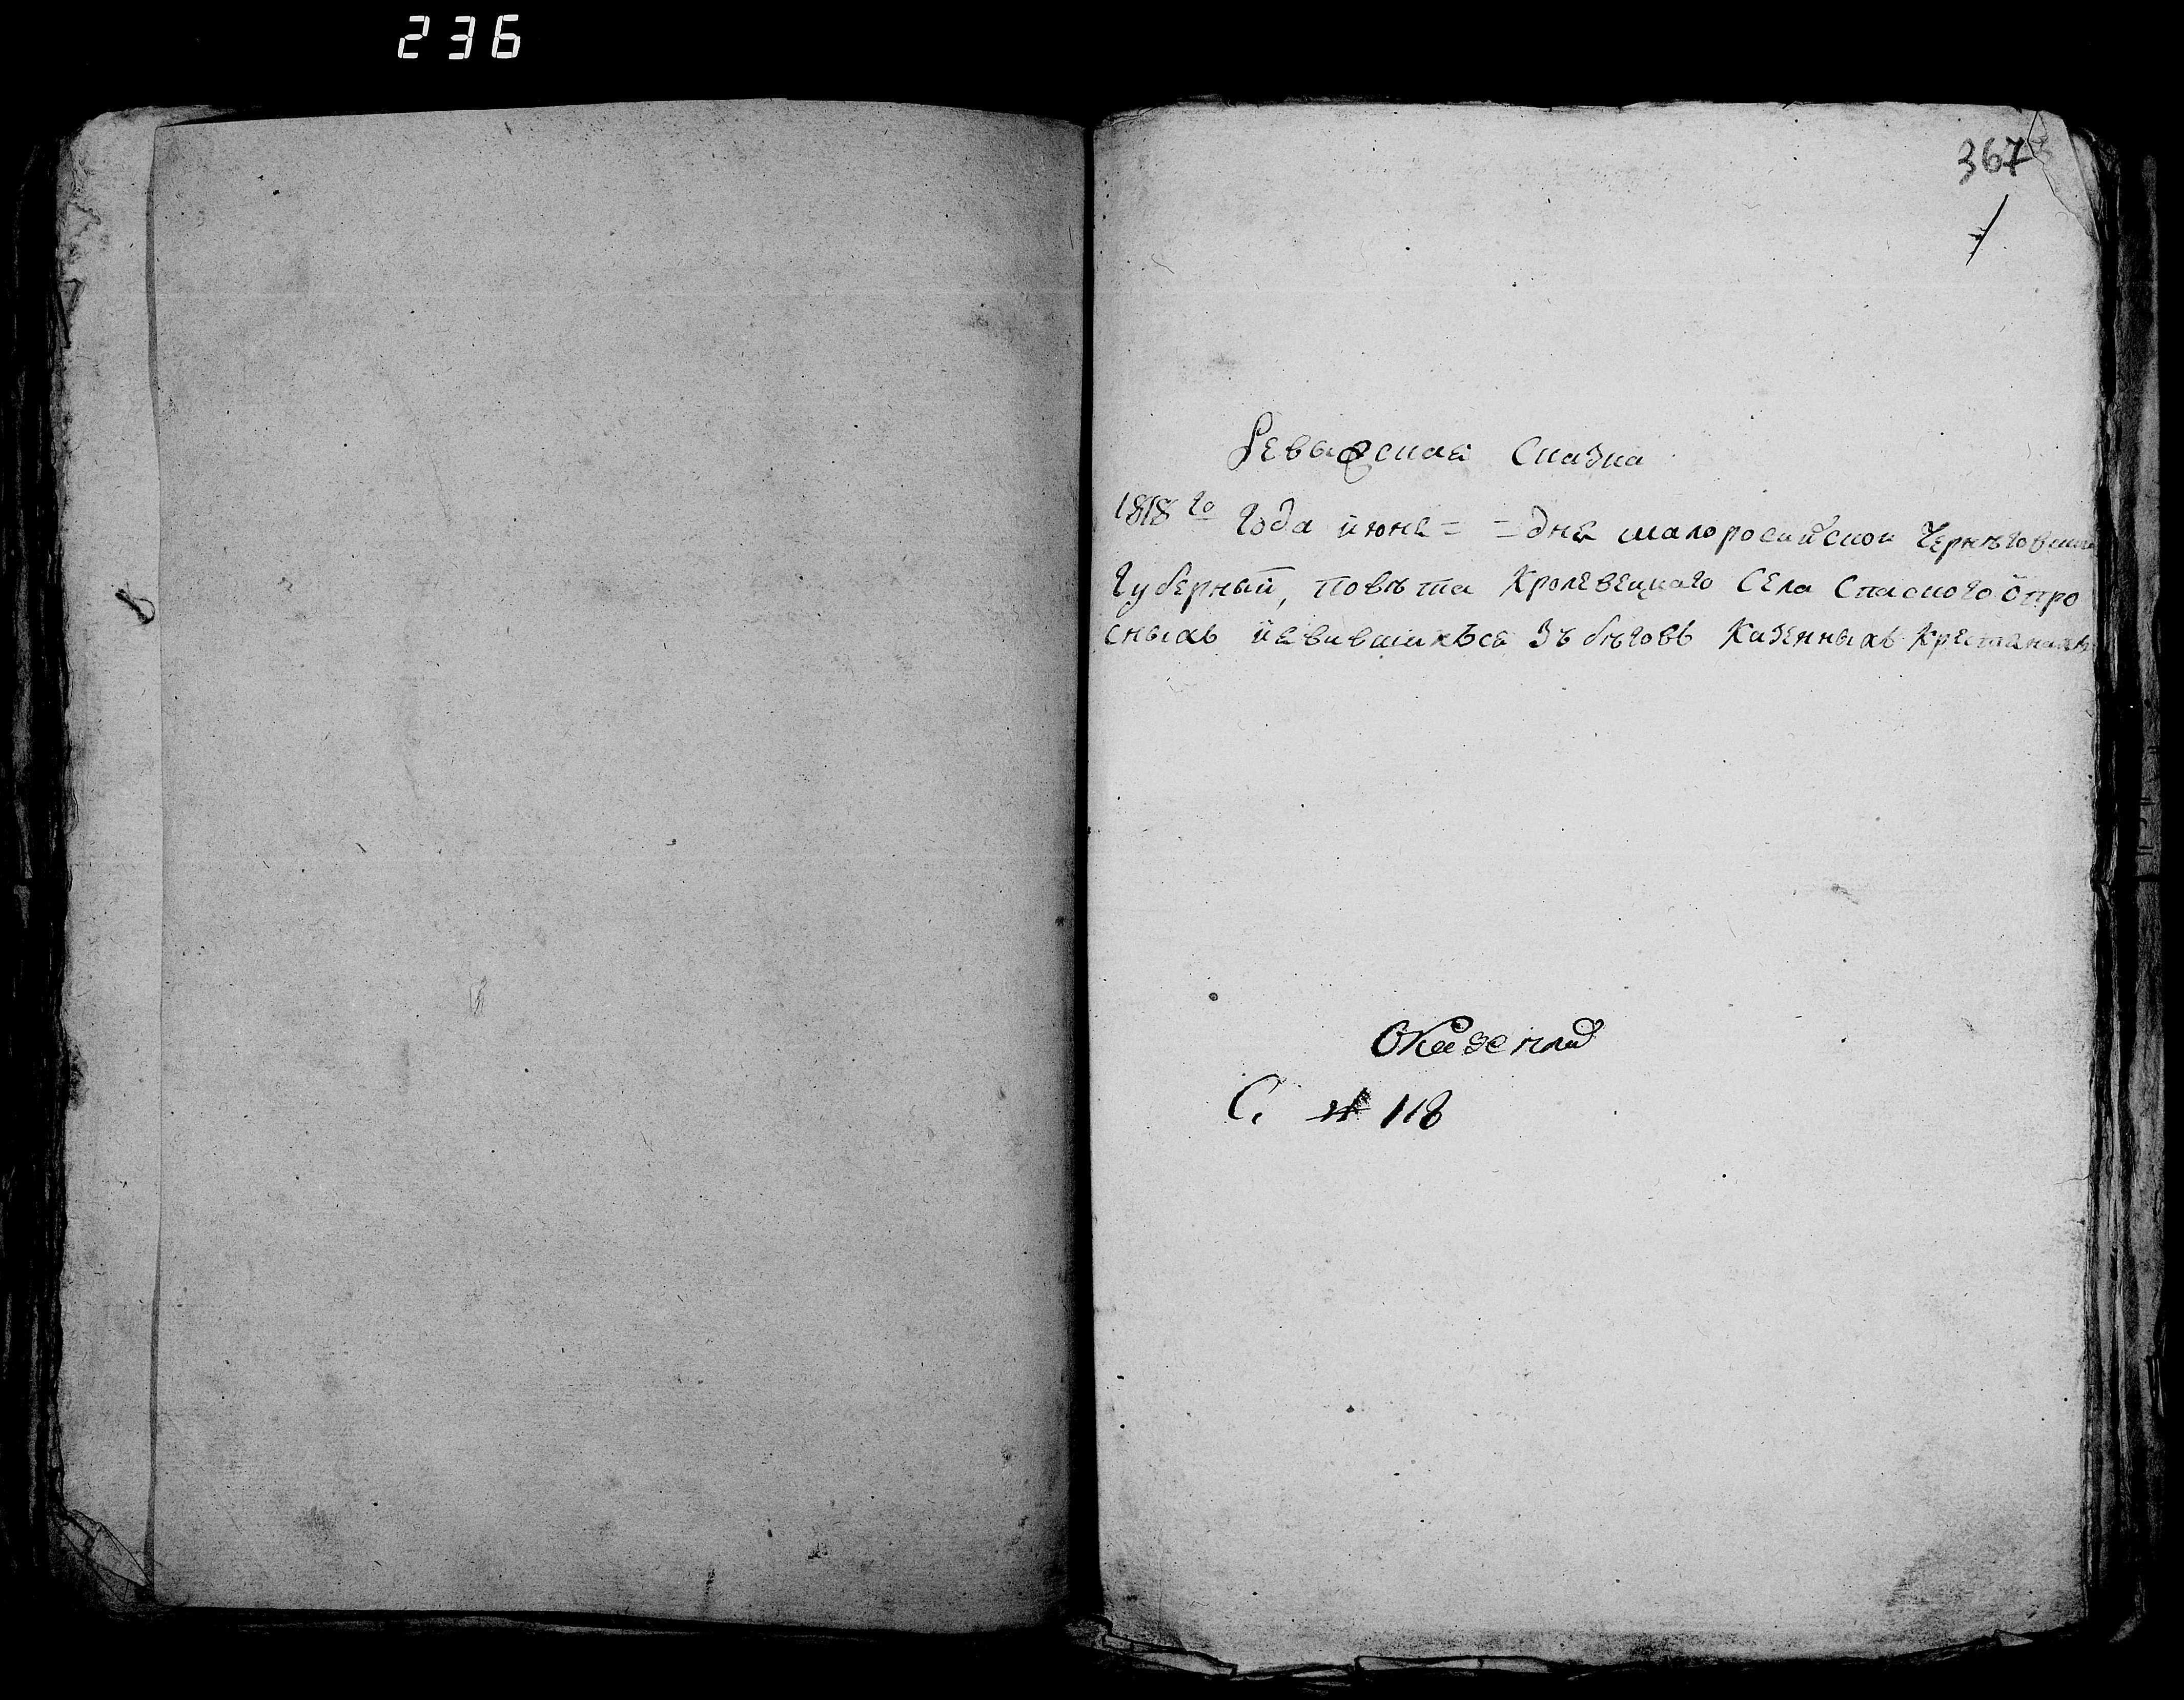 236
367
Ревызская Сказка
1818го Года июня = = дня малоросийской Чернѣговской
Губерныи, повѣта Кролевецкаго Села Спаского о про
сныхъ явившихъся зъ бѣговъ Казенныхъ Крестянахъ
С. № 118